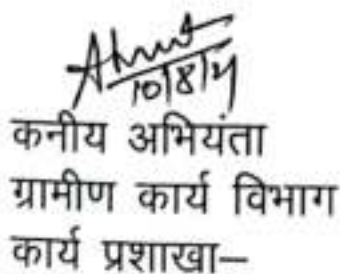 10/8/21
कनीय अभियंता
ग्रामीण कार्य विभाग
कार्य प्रशाखा–